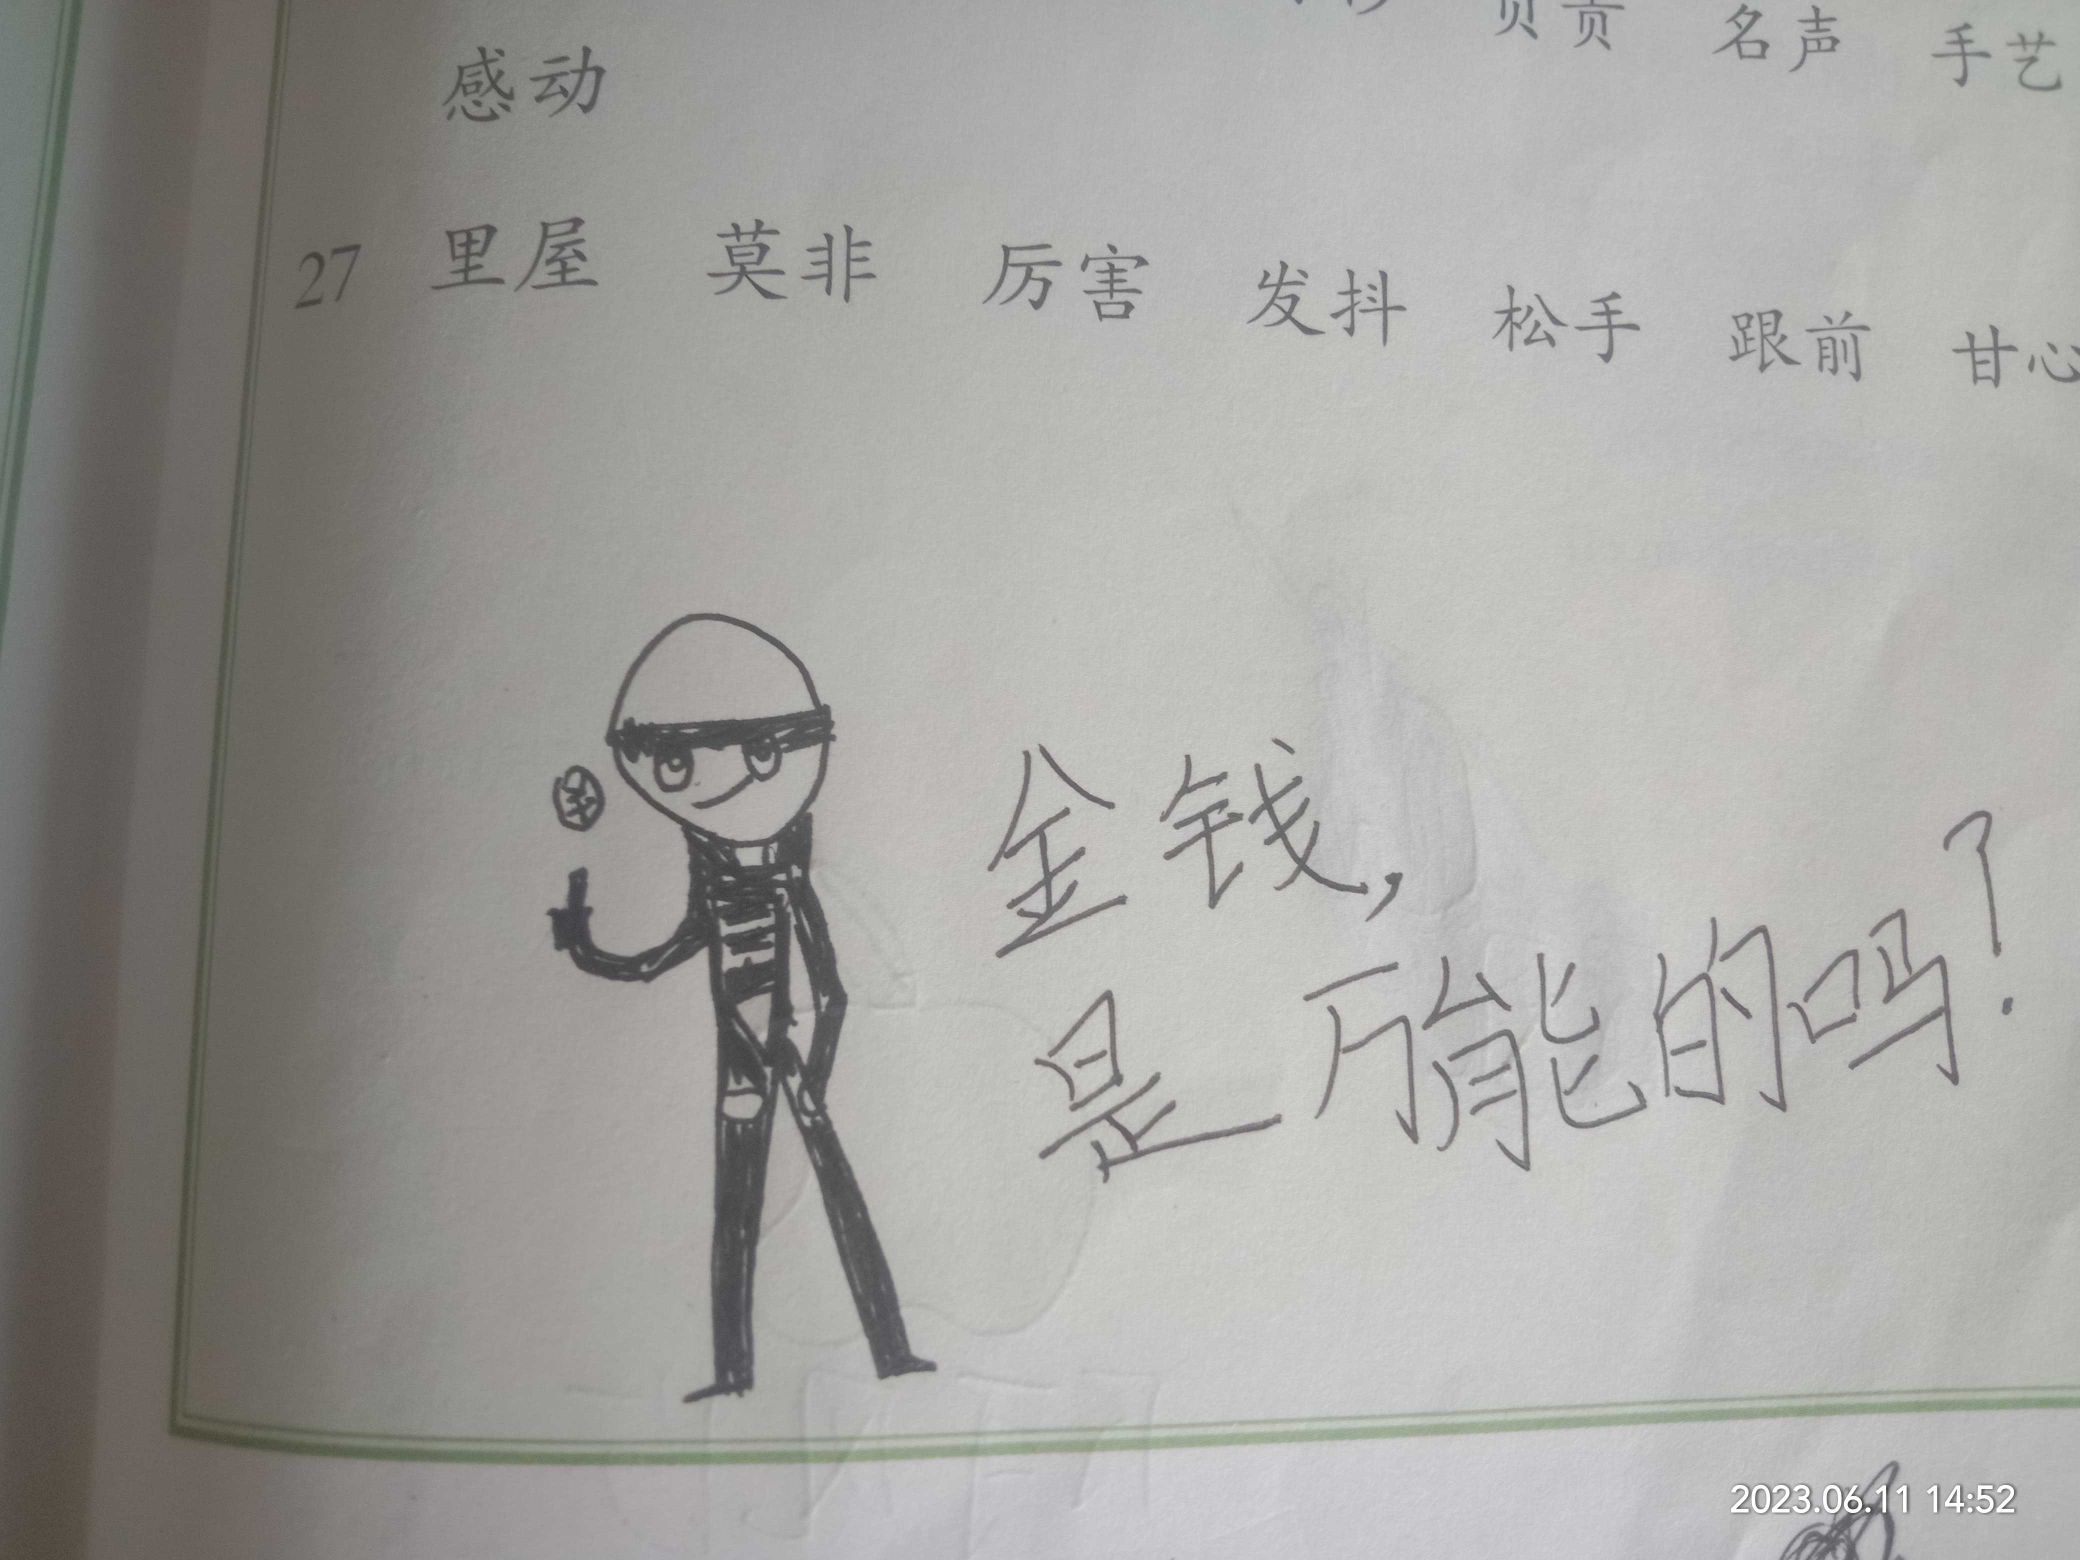 名声 手艺
感动
27 里屋 莫非 厉害 发抖 松手 跟前 甘心
金钱,
是万能的吗?
2023.06.11 14:52